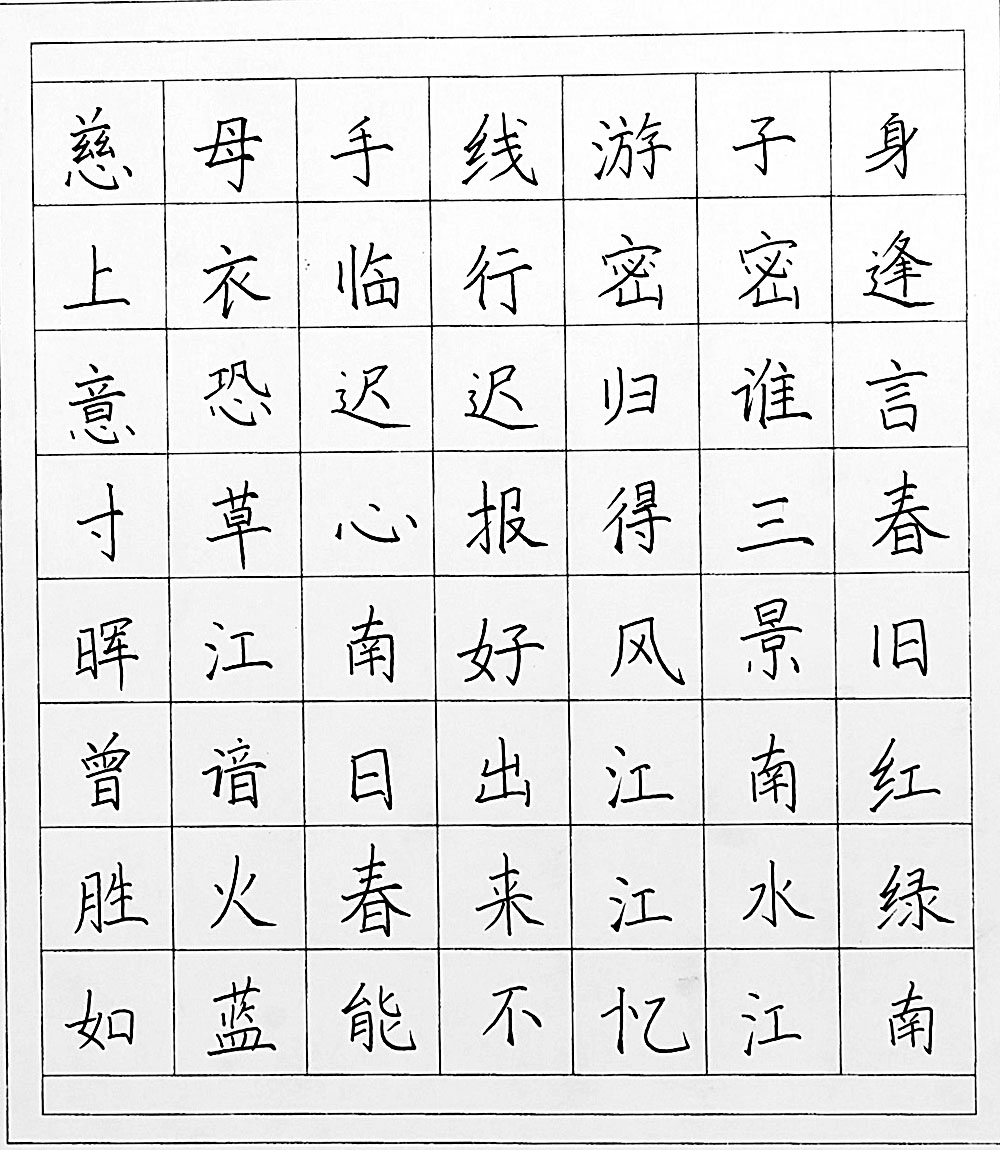 慈母手线游子身
上衣临行密密逢
意恐迟迟归谁言
寸草心报得三春
晖江南好风景旧
曾谙日出江南红
胜火春来江水绿
如蓝能不忆江南